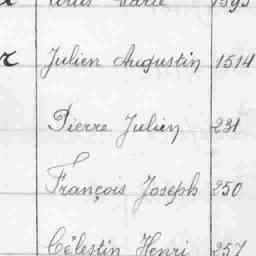 Marie 1595
Julien Augustin 1514
Pierre Julien 231
François Joseph 250
Célestin Henri 257